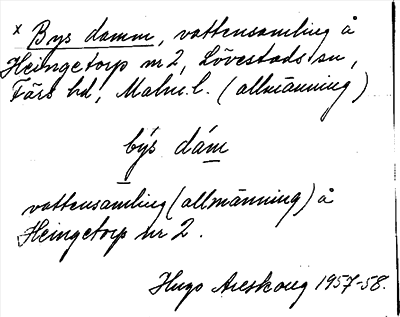 x Bys damm, vattensamling å
Heingetorp nr 2, Lövestads sn,
Färs hd, Malm.l. (allmänning)
býs dám
vattensamling (allmänning) å
Heingetorp nr 2.
Hugo Areskoug 1957-58.